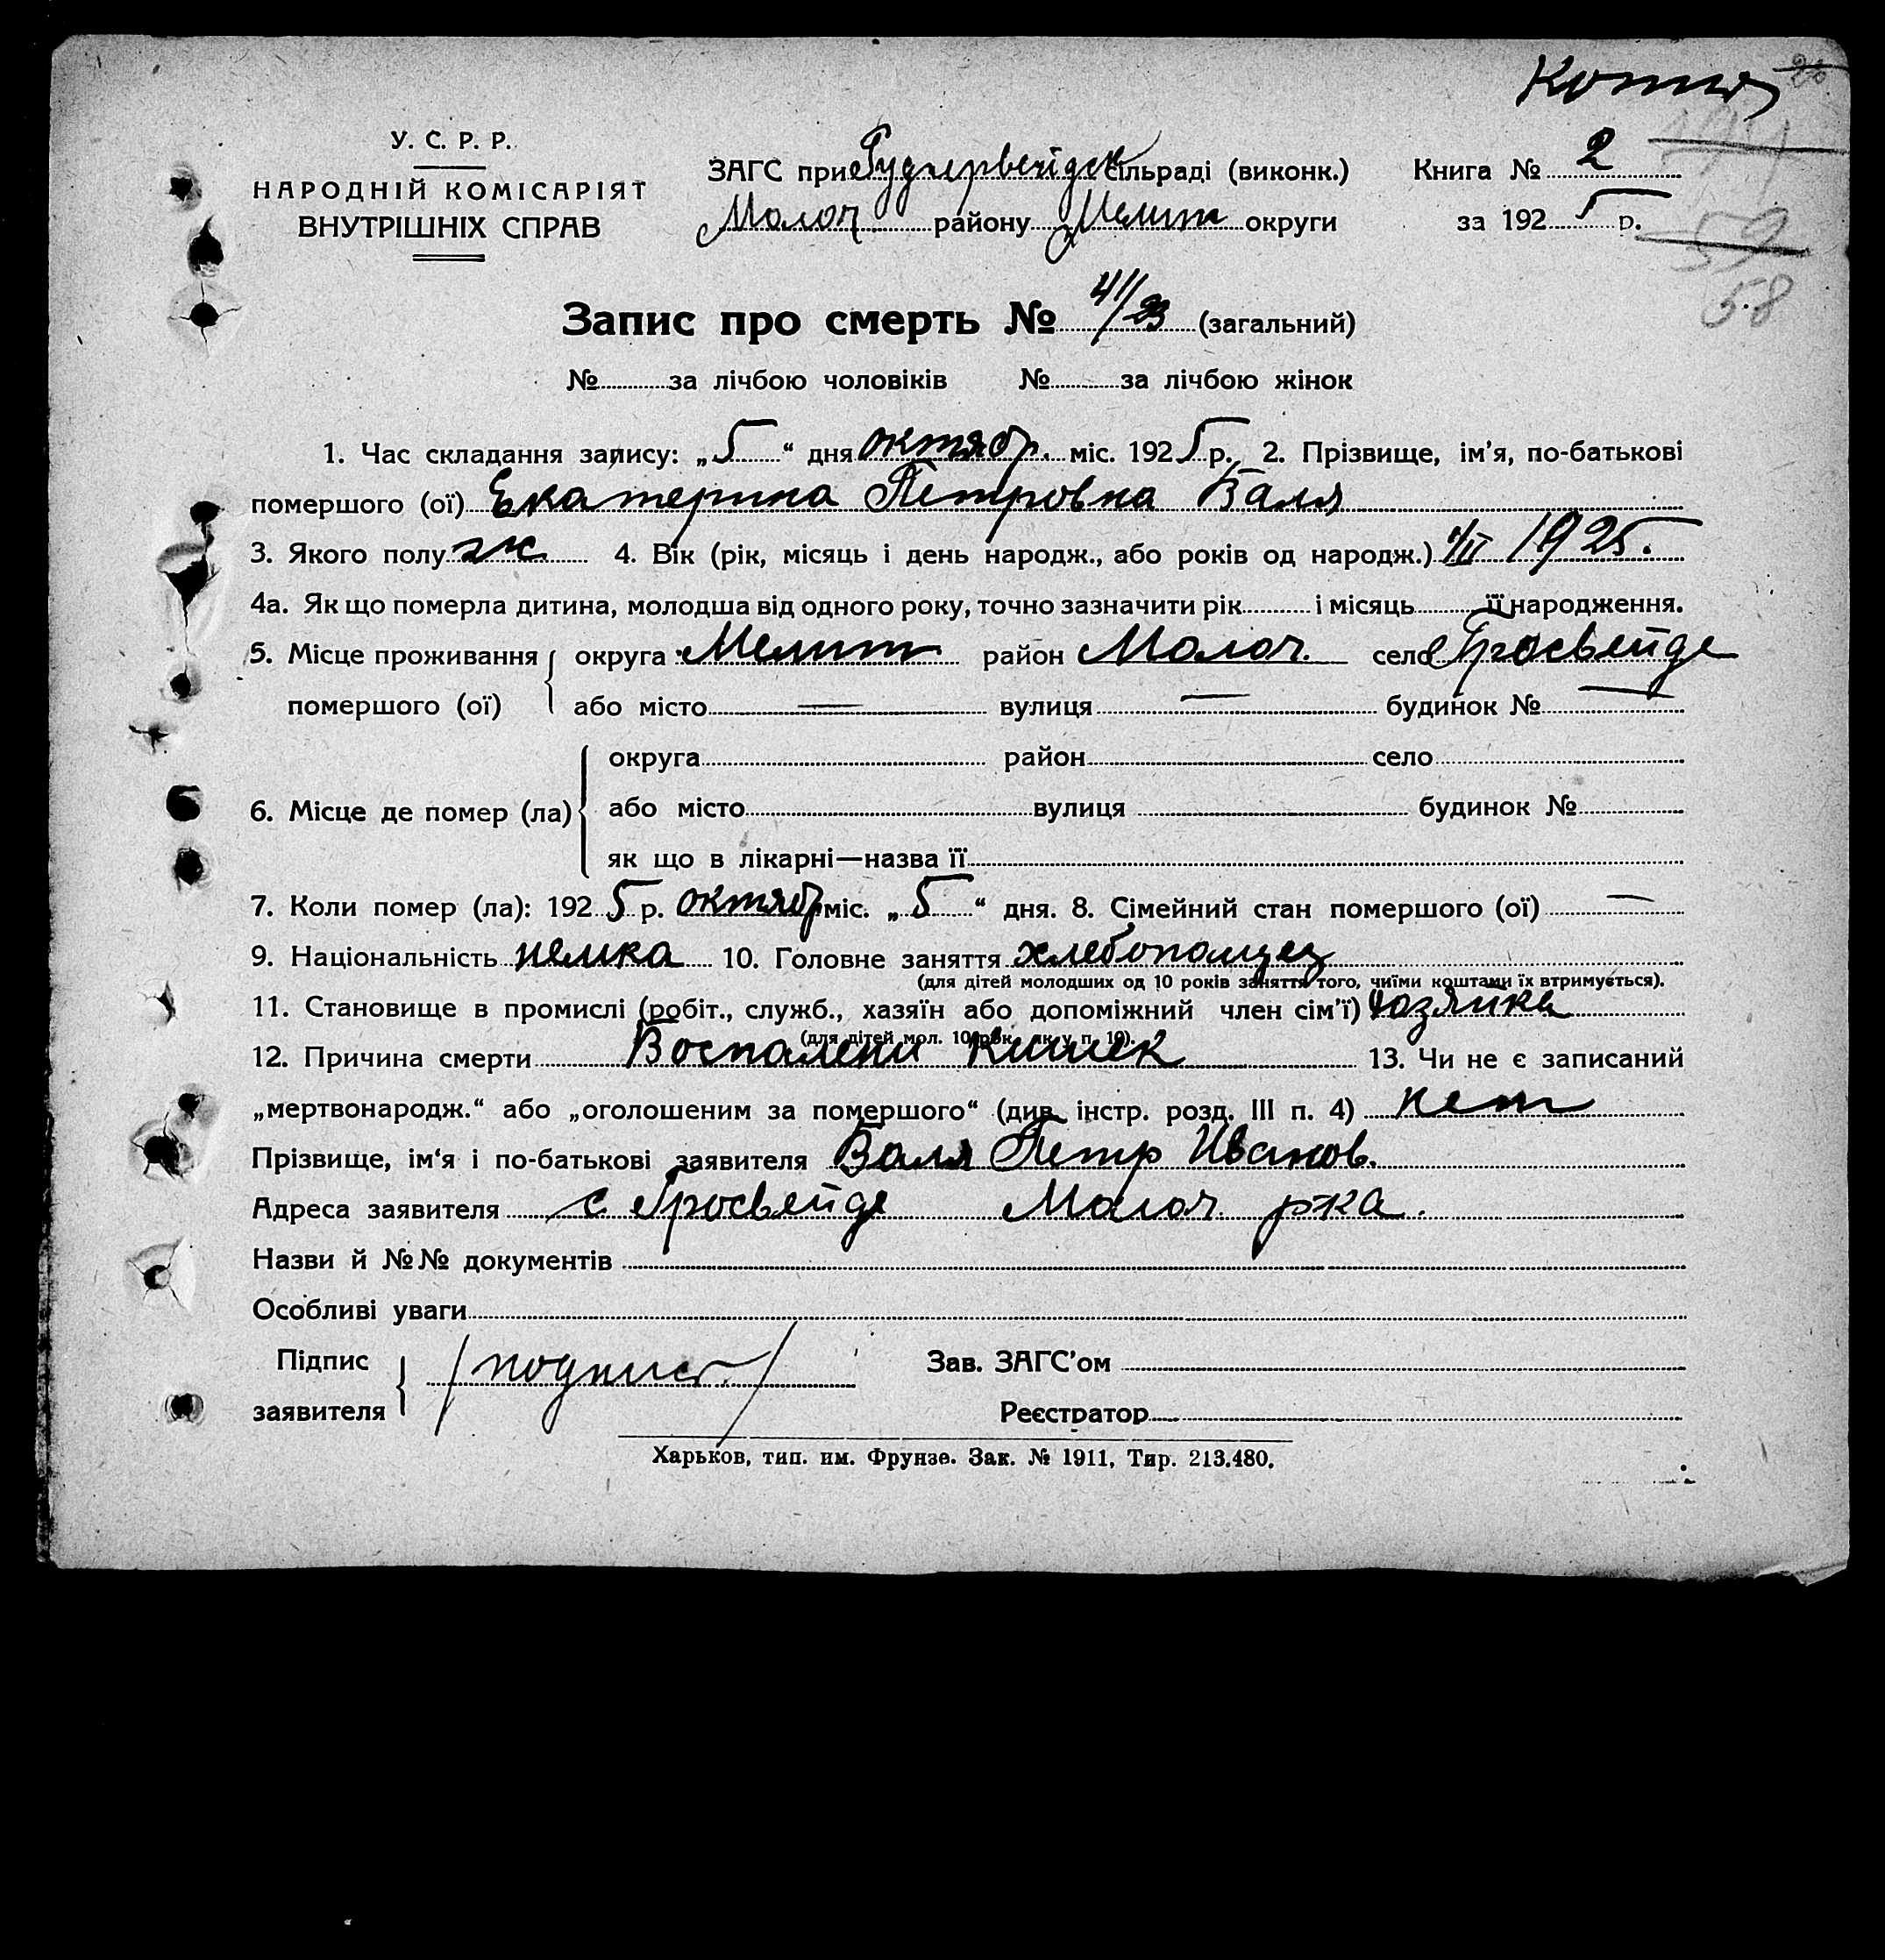 Копия
У. С. Р. Р.
НАРОДНІЙ КОМІСАРІЯТ
ВНУТРІШНІХ СПРАВ
ЗАГС при Руднервейдск сільраді (виконк.)
Молоч району Мелит округи
Книга № 2
за 1925 р.
59
58
Запис про смерть № 41/23 (загальний)
№ за лічбою чоловіків № за лічбою жінок
1. Час складання запису: „5“ дня октябр. міс. 1925 р. 2. Прізвище, ім’я, по-батькові
помершого (ої) Екатерина Петровна Валя
3. Якого полу ж 4. Вік (рік, місяць і день народж., або років од народж.) 1925.
4а. Як що померла дитина, молодша від одного року, точно зазначити рік і місяць її народження.
5. Місце проживання округа Мелит район Молоч. село Гросвейде
помершого (ої) або місто — вулиця — будинок № —
округа район село
6. Місце де помер (ла) або місто вулиця будинок №
як що в лікарні—назва її
7. Коли помер (ла): 1925 р. октябр міс. „5“ дня. 8. Сімейний стан помершого (ої) —
9. Національність немка 10. Головне заняття хлебопашец
(для дітей молодших од 10 років заняття того, чиїми коштами їх втримується).
11. Становище в промислі (робіт., служб., хазяїн або допоміжний член сім’ї) хозяика
(для дітей мол. 10 рок. як у п. 10).
12. Причина смерти Воспалени Кишек 13. Чи не є записаний
„мертвонародж.“ або „оголошеним за помершого“ (див. інстр. розд. III п. 4) нет
Прізвище, ім‘я і по-батькові заявителя Валя Петр Иванов.
Адреса заявителя с Гросвейде Молоч р-ка.
Назви й №№ документів
Особливі уваги
Підпис заявителя /подпись/ Зав. ЗАГС’ом
Реєстратор
Харьков, тип. им. Фрунзе. Зак. № 1911, Тир. 213.480.